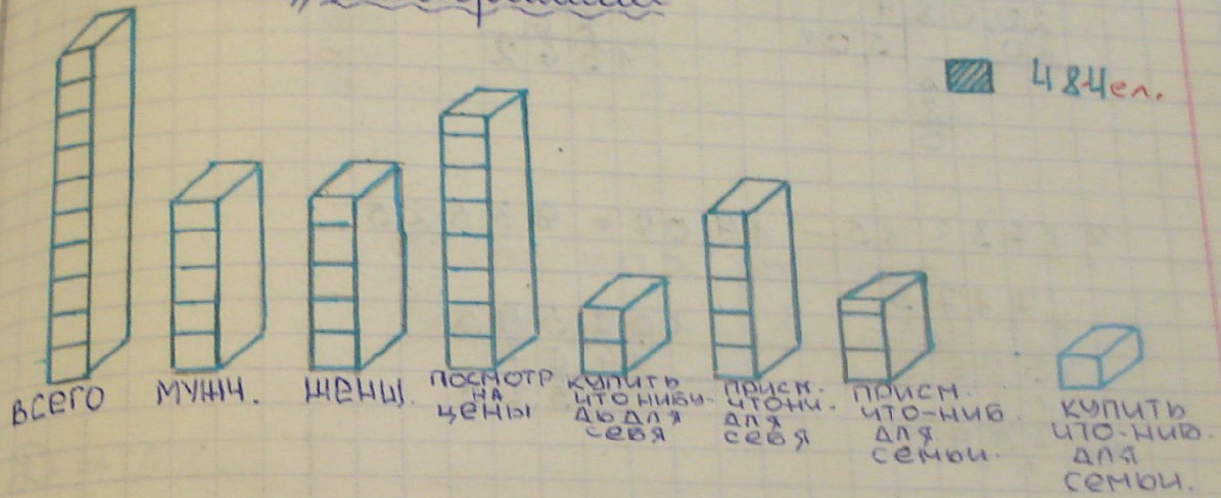 484ел.
ВСЕГО
МУЖЧ.
ЖЕНЩ.
ПОСМОТР
НА
ЦЕНЫ
КУПИТЬ
ЧТО НИБУ-
ДЬ ДЛЯ
СЕБЯ
ПРИСМ.
ЧТО НИ.
ДЛЯ
СЕБЯ
ПРИСМ.
ЧТО-НИБ.
ДЛЯ
СЕМЬИ.
КУПИТЬ
ЧТО-НИБ.
ДЛЯ
СЕМЬИ.